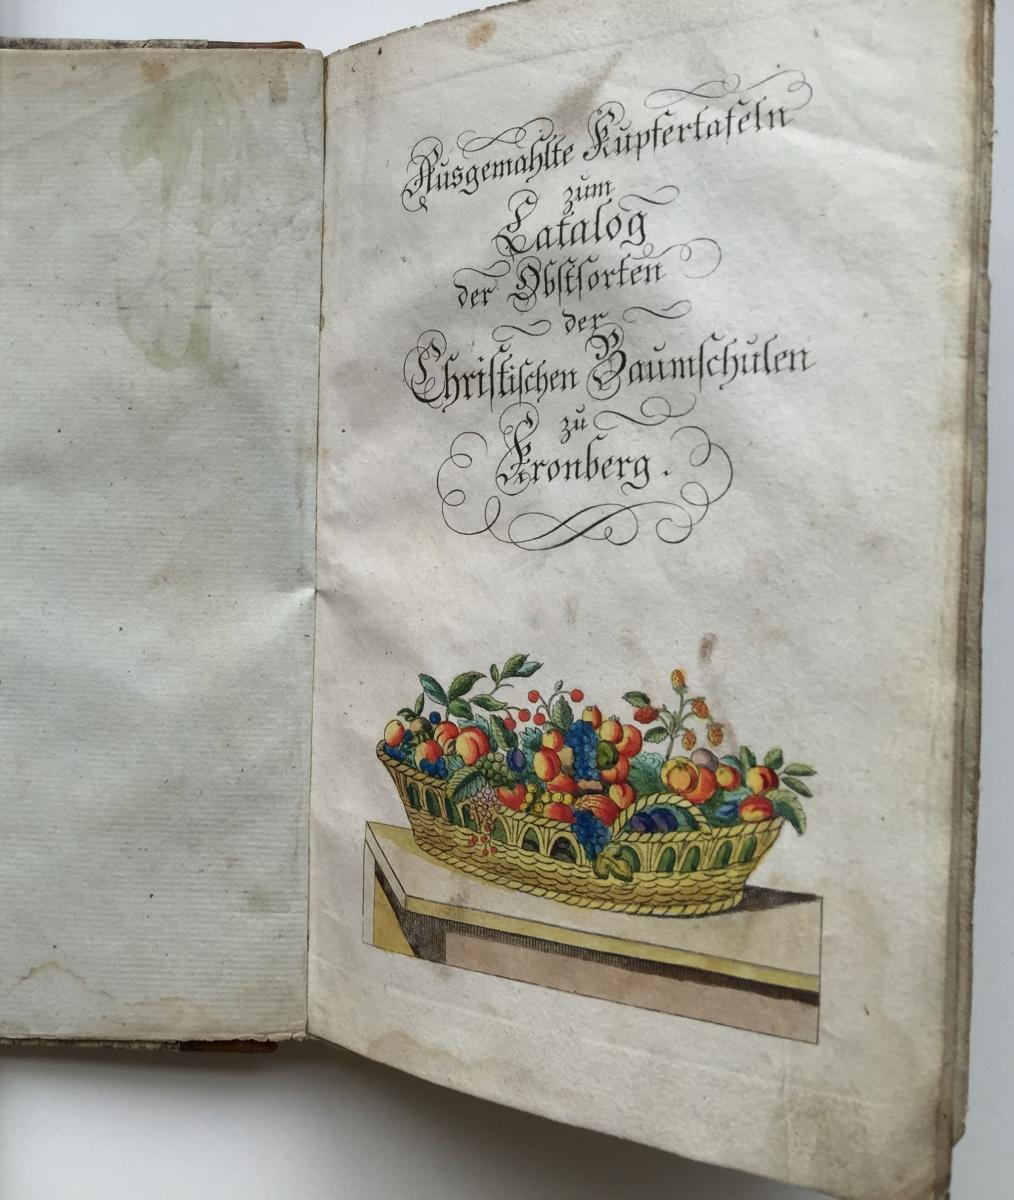 Ausgemahlte Kupfertafeln
zum
Catalog
der Obstsorten
der
Christischen Baumschulen
zu
Kronberg.